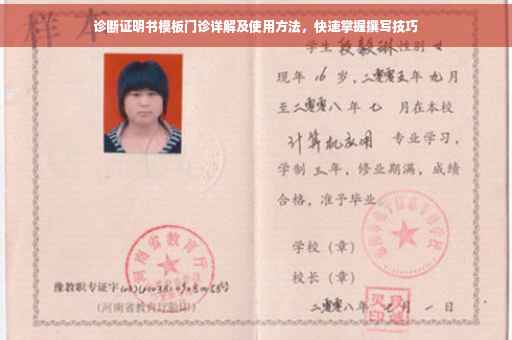 诊断证明书模板门诊详解及使用方法，快速掌握撰写技巧
样本
学生段毅琳性别女
现年16岁，二零零五年九月
至二零零八年七月在本校
计算机应用专业学习，
学制三年，修业期满，成绩
合格，准予毕业。
学校（章）
校长（章）
二零零八年七月一日
河南省教育厅
豫教职专证字
（河南省教育厅验印）